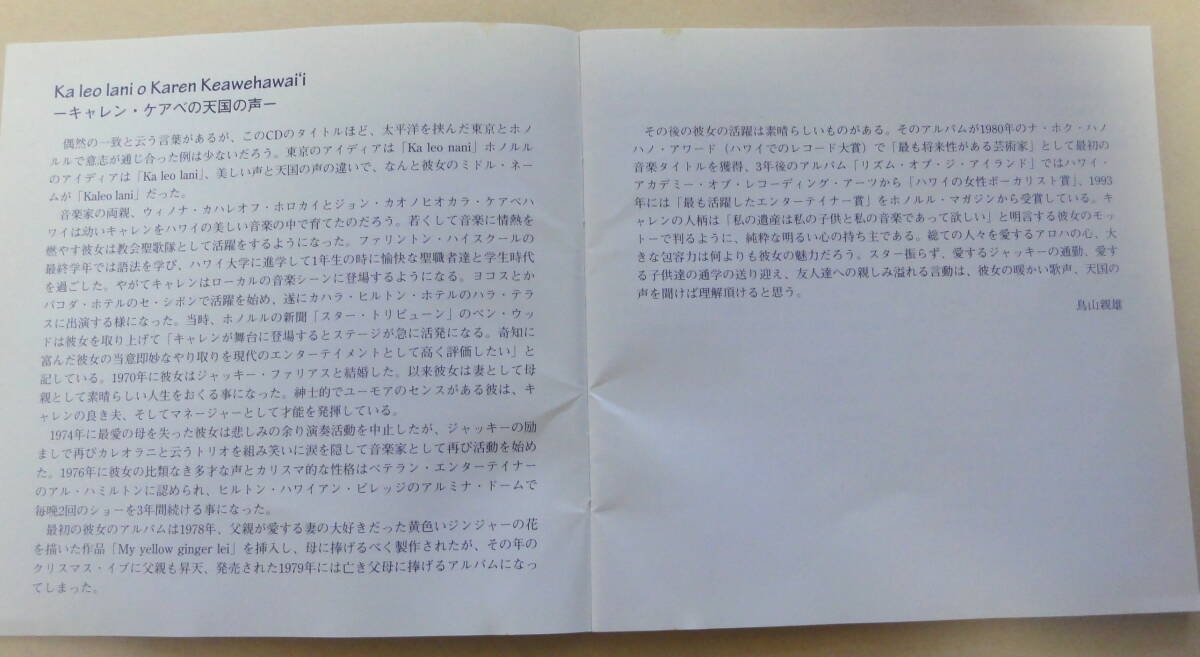 Ka leo lani o Karen Keawehawai'i
ーキャレン・ケアベの天国の声ー
偶然の一致と云う言葉があるが、このCDのタイトルほど、太平洋を挟んだ東京とホノ
ルルで意志が通じ合った例は少ないだろう。東京のアイディアは「Ka leo nani」ホノルル
のアイディアは「Ka leo lani」、美しい声と天国の声の違いで、なんと彼女のミドル・ネー
ムが「Kaleo lani」だった。
音楽家の両親、ウィノナ・カハレオフ・ホロカイとジョン・カオノヒオカラ・ケアベハ
ワイは幼いキャレンをハワイの美しい音楽の中で育てたのだろう。若くして音楽に情熱を
燃やす彼女は教会聖歌隊として活躍をするようになった。ファリントン・ハイスクールの
最終学年では語法を学び、ハワイ大学に進学して1年生の時に愉快な聖職者達と学生時代
を過ごした。やがてキャレンはローカルの音楽シーンに登場するようになる。ヨコスとか
パコダ・ホテルのセ・シボンで活躍を始め、遂にカハラ・ヒルトン・ホテルのハラ・テラ
スに出演する様になった。当時、ホノルルの新聞「スター・トリビューン」のベン・ウッ
ドは彼女を取り上げて「キャレンが舞台に登場するとステージが急に活発になる。奇知に
富んだ彼女の当意即妙なやり取りを現代のエンターテイメントとして高く評価したい」と
記している。1970年に彼女はジャッキー・ファリアスと結婚した。以来彼女は妻として母
親として素晴らしい人生をおくる事になった。紳士的でユーモアのセンスがある彼は、キ
ャレンの良き夫、そしてマネージャーとして才能を発揮している。
1974年に最愛の母を失った彼女は悲しみの余り演奏活動を中止したが、ジャッキーの励
ましで再びカレオラニと云うトリオを組み笑いに涙を隠して音楽家として再び活動を始め
た。1976年に彼女の比類なき多才な声とカリスマ的な性格はベテラン・エンターテイナー
のアル・ハミルトンに認められ、ヒルトン・ハワイアン・ビレッジのアルミナ・ドームで
毎晩2回のショーを3年間続ける事になった。
最初の彼女のアルバムは1978年、父親が愛する妻の大好きだった黄色いジンジャーの花
を描いた作品「My yellow ginger lei」を挿入し、母に捧げるべく製作されたが、その年の
クリスマス・イブに父親も昇天、発売された1979年には亡き父母に捧げるアルバムになっ
てしまった。
その後の彼女の活躍は素晴らしいものがある。そのアルバムが1980年のナ・ホク・ハノ
ハノ・アワード（ハワイでのレコード大賞）で「最も将来性がある芸術家」として最初の
音楽タイトルを獲得、3年後のアルバム「リズム・オブ・ジ・アイランド」ではハワイ・
アカデミー・オブ・レコーディング・アーツから「ハワイの女性ボーカリスト賞」、1993
年には「最も活躍したエンターテイナー賞」をホノルル・マガジンから受賞している。キ
ャレンの人柄は「私の遺産は私の子供と私の音楽であって欲しい」と明言する彼女のモッ
トーで判るように、純粋な明るい心の持ち主である。総ての人々を愛するアロハの心、大
きな包容力は何よりも彼女の魅力だろう。スター振らず、愛するジャッキーの通勤、愛す
る子供達の通学の送り迎え、友人達への親しみ溢れる言動は、彼女の暖かい歌声、天国の
声を聞けば理解頂けると思う。
鳥山親雄